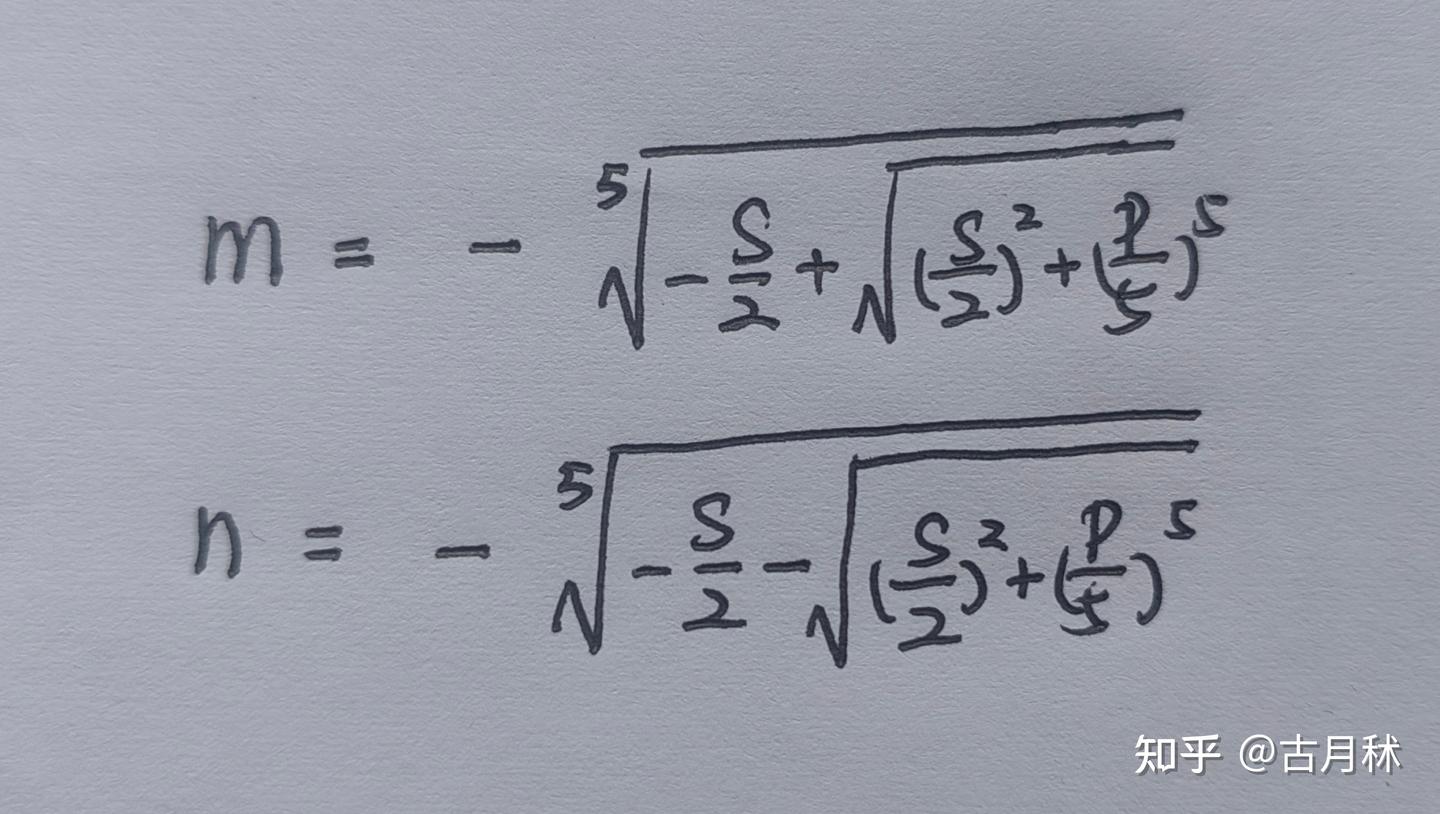 m = - ⁵√(-S/2 + √((S/2)² + (P/5)⁵))
n = - ⁵√(-S/2 - √((S/2)² + (P/5)⁵))
知乎 @古月秫